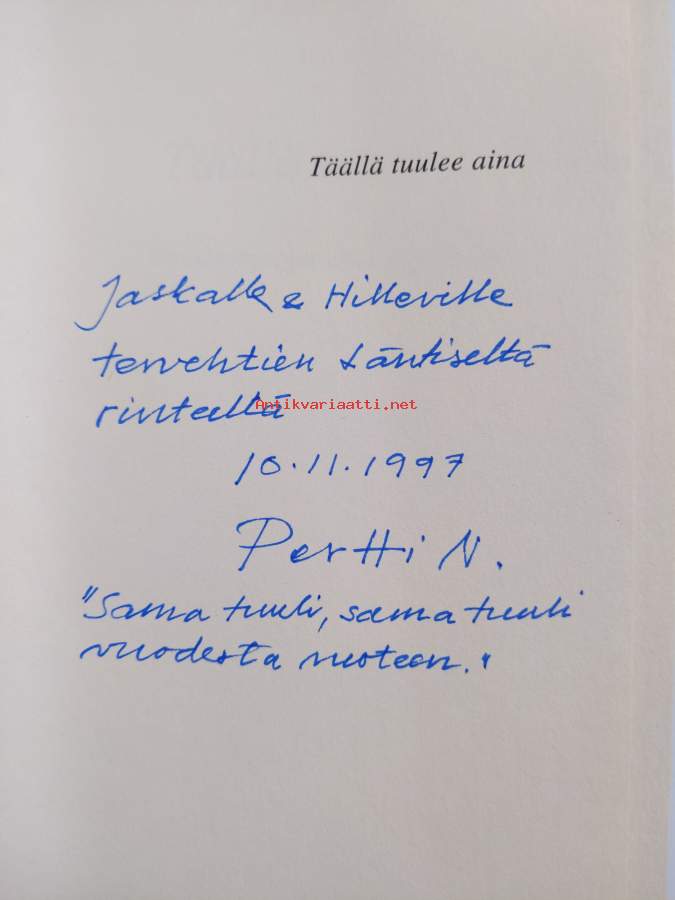 Täällä tuulee aina
Jaskalle & Hilleville
tervehtien Läntiseltä
rinteeltä
Antikvariaatti.net
10.11.1997
Pertti N.
"Sama tuuli, sama tuuli
vuodesta vuoteen."